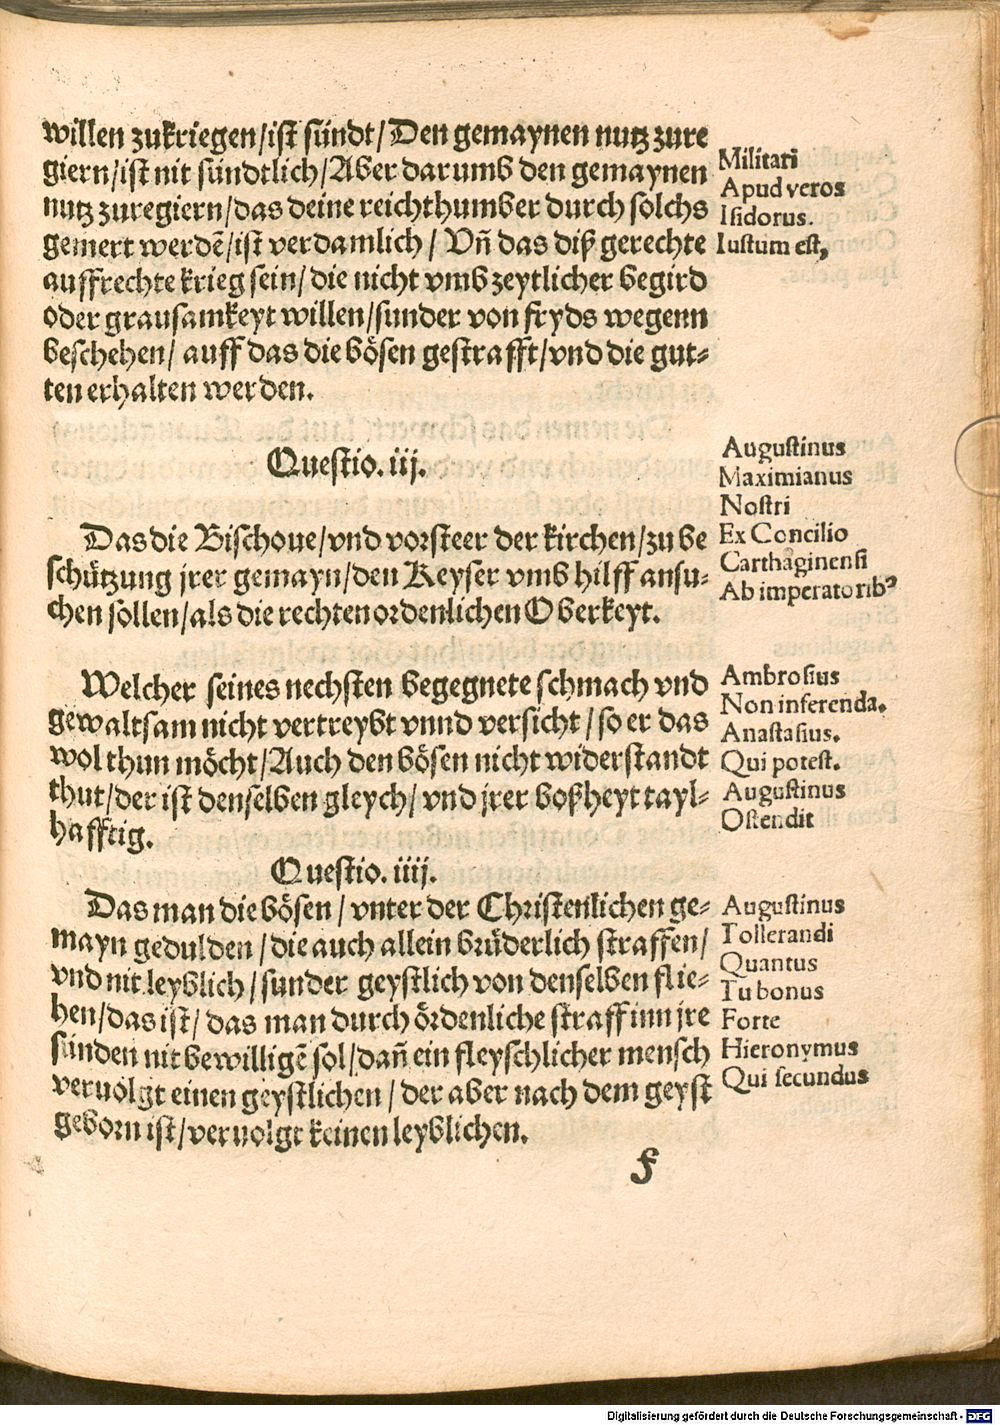 willen zukriegen/ist sündt/Den gemaynen nutz zure
giern/ist nit sündtlich/Aber darumb den gemaynen
nutz zuregiern/das deine reichthumber durch solchs
gemert werdē/ist verdamlich/ Vñ das diß gerechte
auffrechte krieg sein/die nicht vmb zeytlicher begird
oder grausamkeyt willen/sunder von fryds wegenn
beschehen/ auff das die bösen gestrafft/vnd die gut-
ten erhalten werden.
Militari
Apud veros
Isidorus.
Iustum est,
Questio. iij.
Das die Bischoue/vnd vorsteer der kirchen/zu be
schützung jrer gemayn/den Keyser vmb hilff ansu-
chen sollen/als die rechten ordenlichen Oberkeyt.
Augustinus
Maximianus
Nostri
Ex Concilio
Carthaginensi
Ab imperatoribꝰ
Welcher seines nechsten begegnete schmach vnd
gewaltsam nicht vertreybt vnnd versicht/so er das
wol thun möcht/Auch den bösen nicht widerstandt
thut/der ist denselben gleych/vnd jrer boßheyt tayl-
hafftig.
Ambrosius
Non inferenda.
Anastasius.
Qui potest.
Augustinus
Ostendit
Questio. iiij.
Das man die bösen/vnter der Christenlichen ge-
mayn gedulden/die auch allein brüderlich straffen/
vnd nit leyblich/sunder geystlich von denselben flie-
hen/das ist/das man durch ördenliche straff inn jre
sünden nit bewilligē sol/dañ ein fleyschlicher mensch
veruolgt einen geystlichen/der aber nach dem geyst
geborn ist/veruolgt keinen leyblichen.
Augustinus
Tollerandi
Quantus
Tu bonus
Forte
Hieronymus
Qui secundus
f
Digitalisierung gefördert durch die Deutsche Forschungsgemeinschaft - DFG